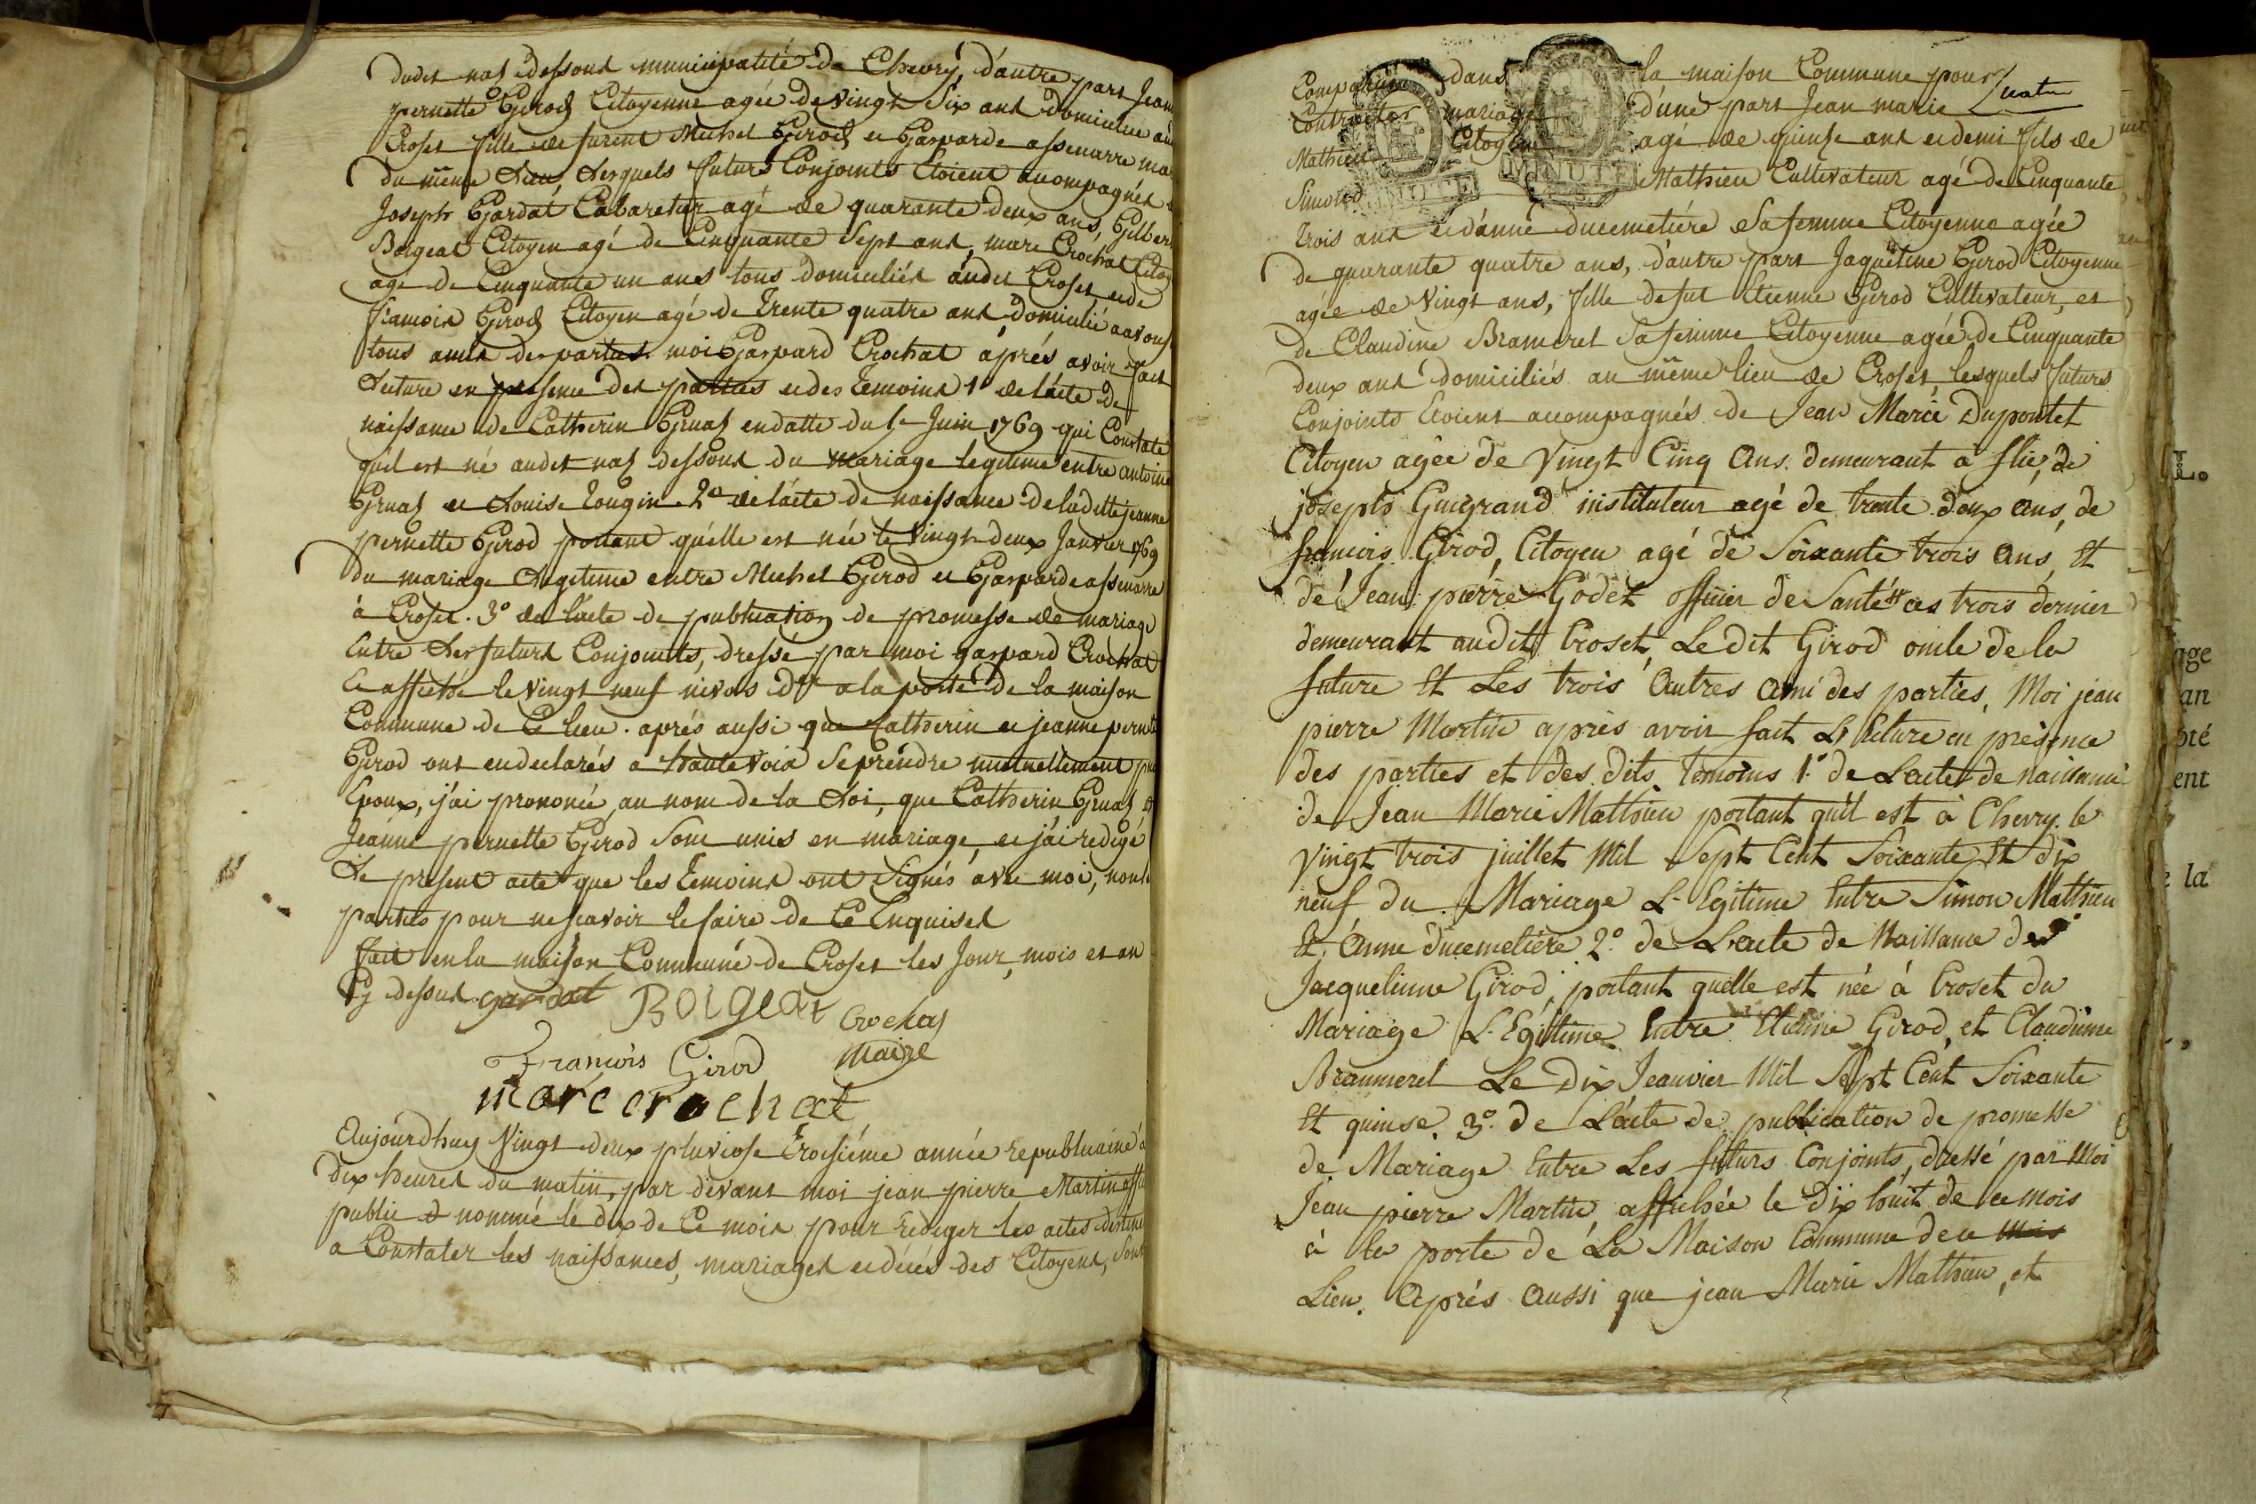 dudit nas dessous municipatité de Chevry, d'autre part Jean
pernette Girod Citoyenne agée de vingt Six ans domiciliée au
Croset fille de furent Michel Girod et Gasparde assenarre ma
du même Lieu Lesquels futurs Conjoints Etoient acompagnés
Joseph Gardat Cabaretier agé de quarante deux ans, Gilber
Bolgeat Citoyen agé de Cinquante Sept ans, marc Crochat Citoy
agé de Cinquante un ans tous domiciliés audit Croset et de
françois Girod Citoyen agé de Trente quatre ans domicilié a avous
tous amis des parties moi Gaspard Crochat aprés avoir fait
Lecture en presence des parties et des Temoins 1º de lacte de
naissance de Catherin Gruas en datte du Juin 1769 qui Constate
quil est né audit nas dessous du mariage légitime entre antoine
Gruas et Louise Tougin 2º de lácte de naissance de ladite jeanne
pernette Girod portant quélle est née le Vingt deux Janvier 1769
du mariage Legitime entre Michel Girod et Gasparde assenarre
à Croset. 3º de lácte de publication de promesse de mariage
Entre Les futurs Conjoints, dressé par moi gaspard Crochat
Et affiché le Vingt neuf nivos dr a la porte de la maison
Commune de Ce lieu. aprés aussi que Catherin et jeanne pernette
Girod ont eu declarés a haute Voix Se prendre mutuellement pour
Epoux, j'ai prononcé, au nom de la Loi, que Catherin Gruas et
Jeanne pernette Girod Sont unis en mariage, et j'ai redigé
Le present acte que les Temoins ont Signés avec moi, non les
parties pour ne scavoir le faire de Ce Enquises
fait en la maison Commune de Croset les Jour, mois et an
Cy dessus gardat Bolgeat Crochas
François Girod Maire
marc crochat
Aujourdhuy Vingt deux pluviose Troisiéme année republicaine à
dix heures du matin, par devant moi jean pierre Martin offi
public nommé le dix de Ce mois pour rediger les actes destinés
a Constater les naissances, mariages et décés des Citoyens, Sont
Comparus dans la maison Commune pour Quatre
Contracter mariage d'une part Jean marie
Mathieu Citoyen agé de quinse ans et demi fils de
Simond Mathieu Cultivateur agé de Cinquante
Trois ans et d'anne ducemetiére Sa femme Citoyenne agée
de quarante quatre ans, d'autre part Jaqueline Girod Citoyenne
agée de Vingt ans, fille de fut Etienne Girod Cultivateur, et
de Claudine Brameret Sa femme Citoyenne agée de Cinquante
deux ans domiciliés au même lieu de Croset, lesquels futurs
Conjoints Etoient accompagnés de Jean Marie Dupontet
Citoyen agée de Vingt Cinq Ans. demeurant à flie, de
joseph Guigrand instituteur agé de trente deux ans, de
françois Girod, Citoyen agé de Soixante trois ans, Et
de Jean pierre Godet officier de Santé ces trois dernier
demeurant audit Croset, Le dit Girod oncle de la
future Et Les trois Autres Ami des parties, Moi jean
pierre Martin après avoir fait L Ecture en présence
des parties et des dits témoins 1º de Lacte de naissance
de Jean Marie Mathieu portant quil est à Chevry le
vingt trois juillet Mil Sept Cent Soixante Et dix
neuf, du Mariage L-Egitime Entre Simon Mathieu
Et Anne ducemetière 2º de L-acte de Naissance de
Jacquelinne Girod, portant quelle est née à Croset du
Mariage L-Egitime Entre Etienne Girod, et Claudinne
Brammeret Le Dix Jeanvier Mil Sept Cent Soixante
Et quinse. 3º de L'acte de publication de promesse
de Mariage Entre Les futurs Conjoints, dressé par Moi
Jean pierre Martin, affichée le dix huit de ce mois
à la porte de La Maison Commune de ce mois
Lieu. Après Aussi que jean Marie Mathieu, et